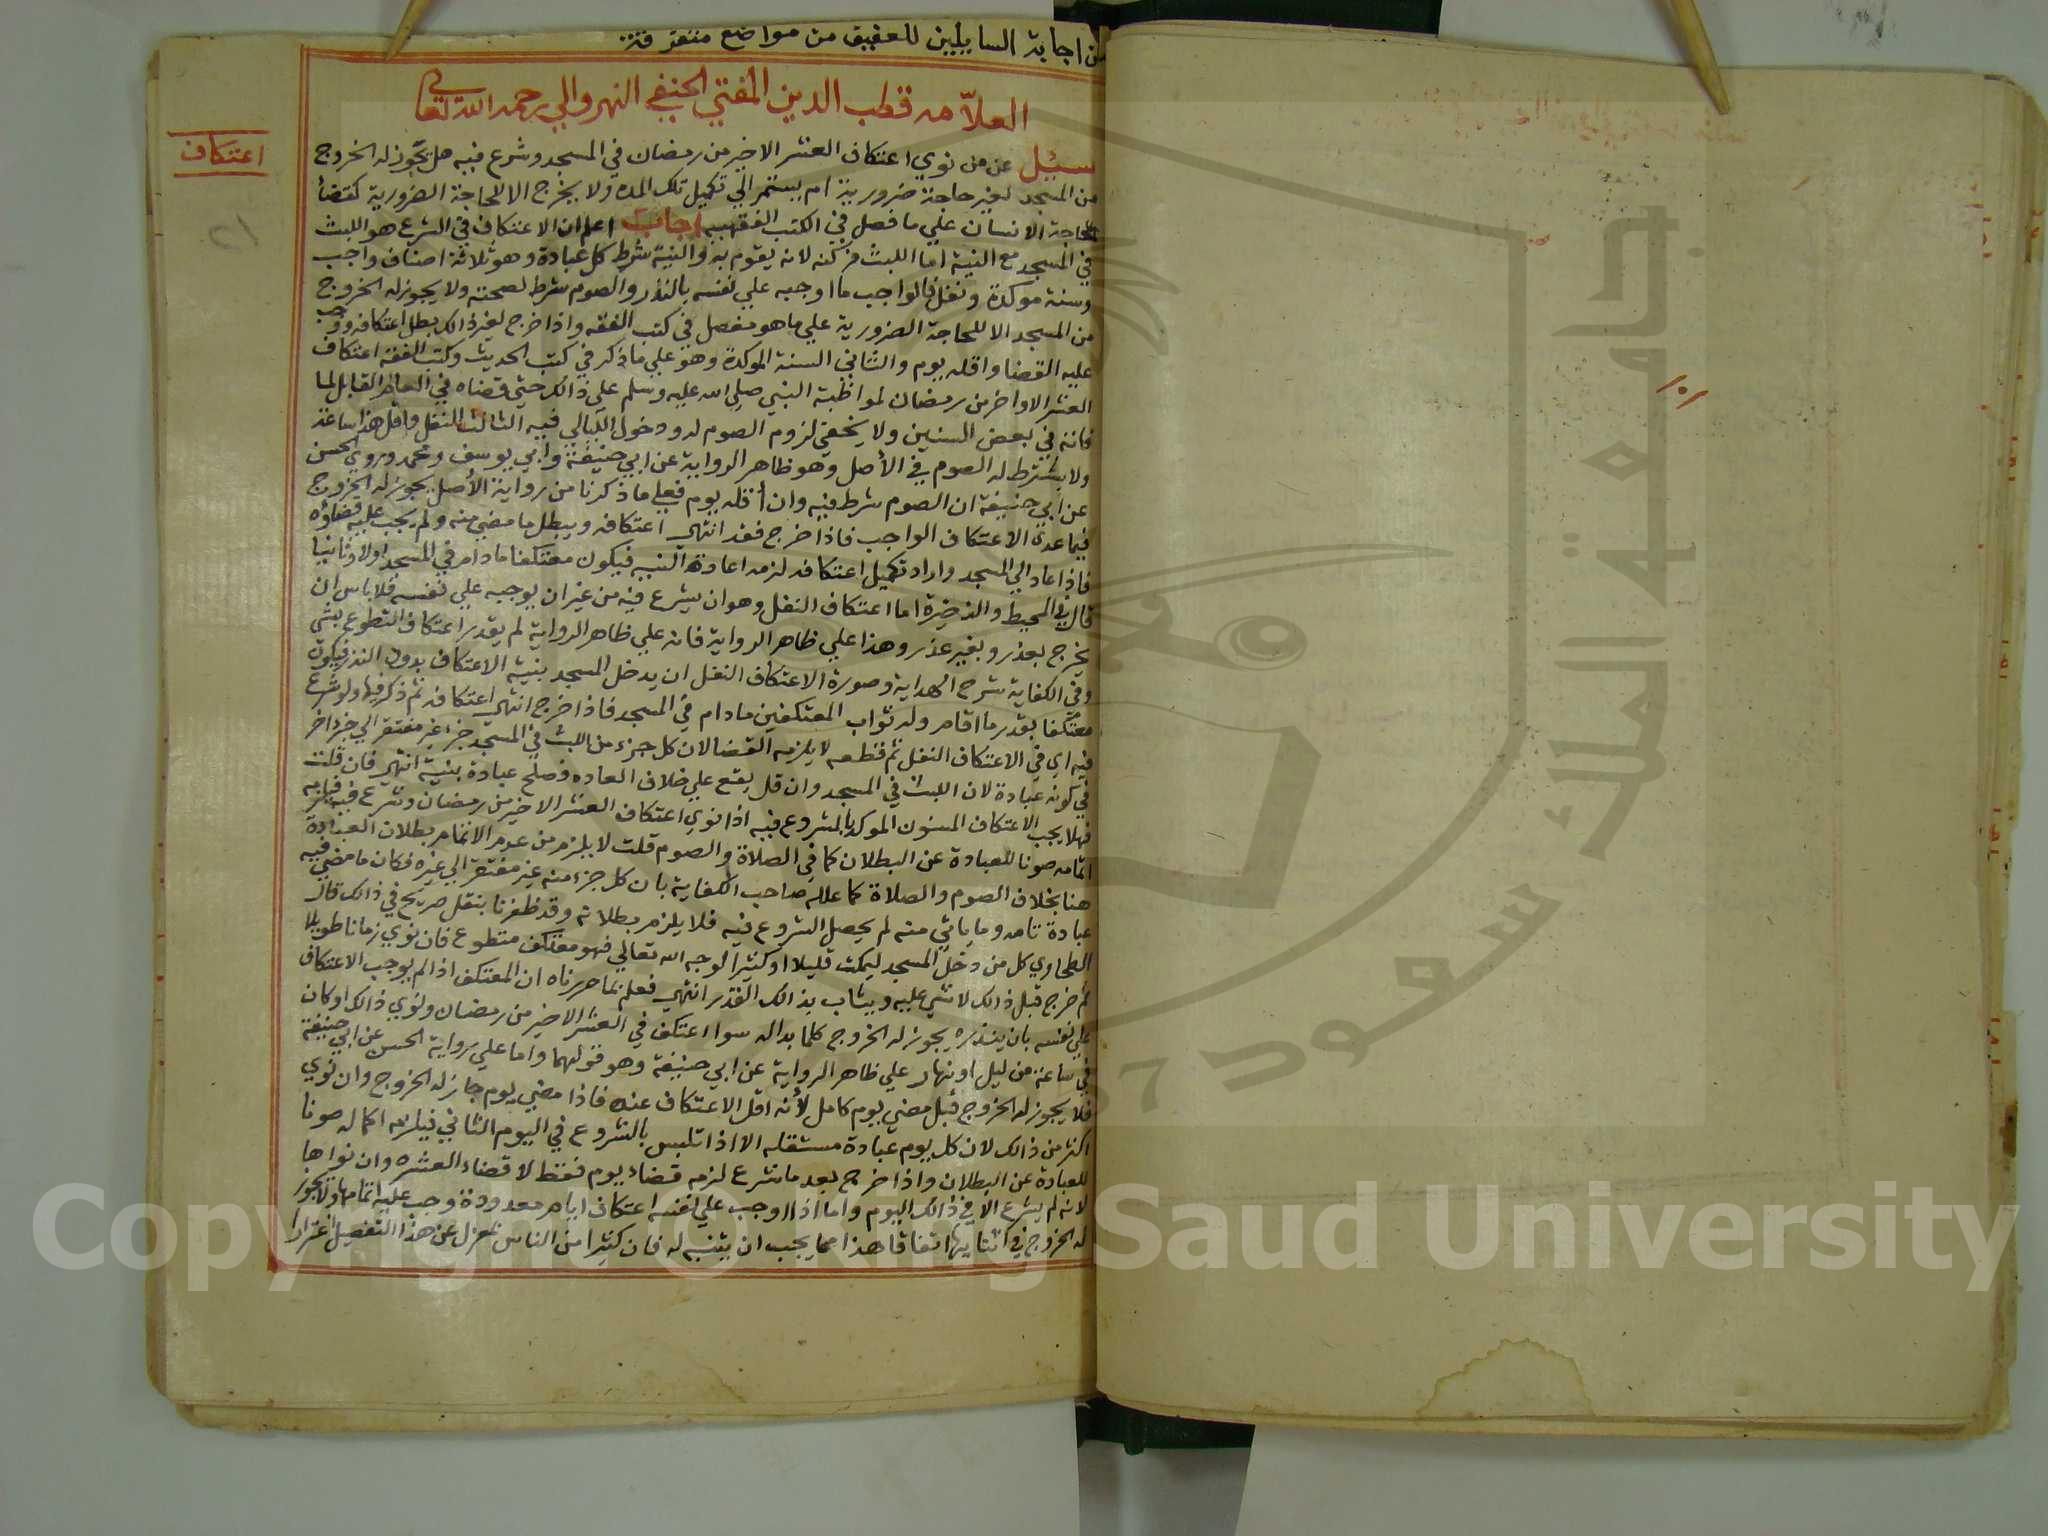 من اجابة السايلين للعفيف من مواضع متفرقة
العلامه قطب الدين المفتي الحنفي النهروالي رحمه الله تعالى
اعتكاف
سئيل عن من نوي اعتكاف العشر الاخير من رمضان في المسجد وشرع فيه هل يجوز له الخروج
من المسجد لغير حاجة ضرورية ام يستمر الي تكميل تلك المده ولا يخرج الا لحاجة الضرورية كقضاء
لحاجة الانسان علي ما فصل في الكتب الفقهيه اجاب اعلم ان الاعتكاف في الشرع هو اللبث
في المسجد مع النية اما اللبث فركنه لانه يقوم به والنية شرط كل عبادة وهو ثلاثة اصناف واجب
وسنة موكدة ونفل فالواجب ما اوجبه علي نفسه بالنذر والصوم شرط لصحته ولا يجوز له الخروج
من المسجد الا للحاجة الضرورية علي ما هو مفصل في كتب الفقه واذا خرج لغير ذالك بطل اعتكافه ووجب
عليه القضا واقله يوم والثاني السنة الموكدة وهو علي ما ذكر في كتب الحديث وكتب الفقه اعتكاف
العشر الاواخر من رمضان لمواظبة النبي صلي الله عليه وسلم علي ذالك حتي قضاه في العام القابل لما
فاته في بعض السنين ولا يخفي لزوم الصوم له ودخول الليالي فيه الثالث النفل واقل هذا ساعة
ولا يشترط له الصوم في الأصل وهو ظاهر الرواية عن ابي حنيفة وابي يوسف ومحمد وروي الحسن
عن ابي حنيفة ان الصوم شرط فيه وان أقله يوم فعلي ما ذكرنا من رواية الأصل يجوز له الخروج
فيما عدى الاعتكاف الواجب فاذا خرج فقد انتهي اعتكافه ويبطل ما مضي منه ولم يجب عليه قضاؤه
فاذا عاد الي المسجد واراد تكميل اعتكافه لزمه اعادة النيه فيكون معتكفا ما دام في المسجد اولا وثانيا
قال في المحيط والذخيرة اما اعتكاف النفل وهو ان يشرع فيه من غير ان يوجبه علي نفسه فلا باس ان
يخرج بعذر وبغير عذر وهذا علي ظاهر الرواية فانه علي ظاهر الرواية لم يقدر اعتكاف التطوع بشي
وفي الكفاية شرح الهداية وصورة الاعتكاف النفل ان يدخل المسجد بنية الاعتكاف بدون النذر فيكون
معتكفا بقدر ما اقام وله ثواب المعتكفين ما دام في المسجد فاذا خرج انتهي اعتكافه ثم ذكر فيها ولو شرع
فيه اي في الاعتكاف النفل ثم قطعه لا يلزمه القضا لان كل جزء من اللبث في المسجد جزا غير مفتقر الي جزا اخر
في كونه عبادة لان اللبث في المسجد وان قل يقع علي خلاف العاده فصلح عبادة بنية انتهي فان قلت
فهلا يجب الاعتكاف المسنون الموكد بالشروع فيه اذا نوي اعتكاف العشر الاخير من رمضان وشرع فيه فيلزمه
اتمامه صونا للعبادة عن البطلان كما في الصلاة والصوم قلت لا يلزم من عدم الاتمام بطلان العبادة
هنا بخلاف الصوم والصلاة كما علله صاحب الكفاية بان كل جزء منه غير مفتقر الي غيره فكان ما مضي فيه
عبادة تامه وما ياتي منه لم يحصل الشروع فيه فلا يلزم بطلانه وقد ظفرنا بنقل صريح في ذالك قال
الطحاوي كل من دخل المسجد ليمكث قليلا او كثيرا لوجه الله تعالي فهو معتكف متطوع فان نوي زمانا طويلا
ثم خرج قبل ذالك لا شي عليه ويثاب بذالك القدر انتهي فعلم بما حررناه ان المعتكف اذا لم يوجب الاعتكاف
علي نفسه بان ينذره يجوز له الخروج كلما بدا له سوا اعتكف في العشر الاخير من رمضان ونوي ذالك او كان
في ساعة من ليل او نهار علي ظاهر الرواية عن ابي حنيفة وهو قولهما واما علي رواية الحسن عن ابي حنيفة
فلا يجوز له الخروج قبل مضي يوم كامل لأنه اقل الاعتكاف عنده فاذا مضي يوم جاز له الخروج وان نوي
اكثر من ذالك لان كل يوم عبادة مستقله الا اذا تلبس بالشروع في اليوم الثاني فيلزمه اكماله صونا
للعبادة عن البطلان واذا خرج بعد ما شرع لزمه قضاء يوم فقط لا قضاء العشره وان نواها
لانه لم يشرع الا في ذالك اليوم واما اذا اوجب علي نفسه اعتكاف ايام معدودة وجب عليه اتمامها ولا يجوز
له الخروج في اثنايها اتفاقا هذا مما يجب ان يتنبه له فان كثيرا من الناس بمعزل عن هذا التفصيل اغترارا
جامعة الملك سعود
Copyright © King Saud University